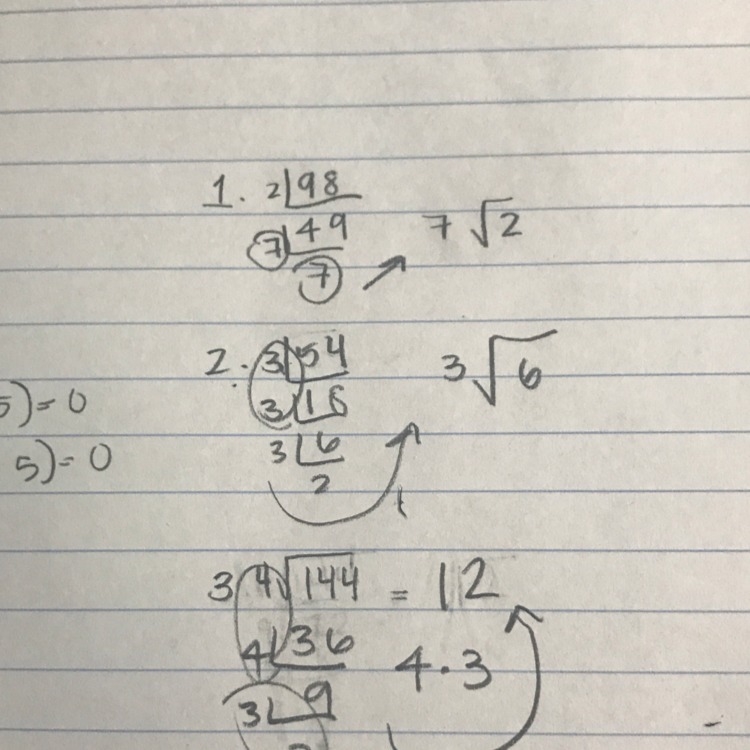 1. 2 98
7 49 7 √2
7
2. 3 54 3 √6
3 18
5) = 0
3 6
5) = 0
2
3 4 144 = 12
4 36 4 · 3
3 9